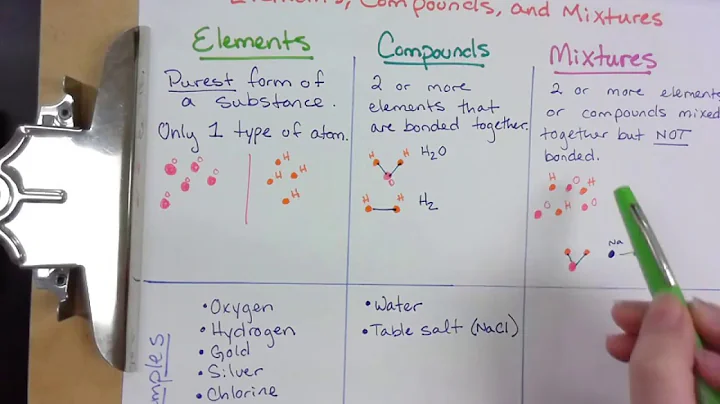 Elements, Compounds, and Mixtures
Elements
Purest form of
a substance.
Only 1 type of atom.
O O O O O
H H H H
Oxygen
Hydrogen
Gold
Silver
Chlorine
Compounds
2 or more
elements that
are bonded together.
H H O
H₂O
H H
H₂
Water
Table salt (NaCl)
Mixtures
2 or more elements
or compounds mixed
together but NOT
bonded.
H O H
O H O
Na